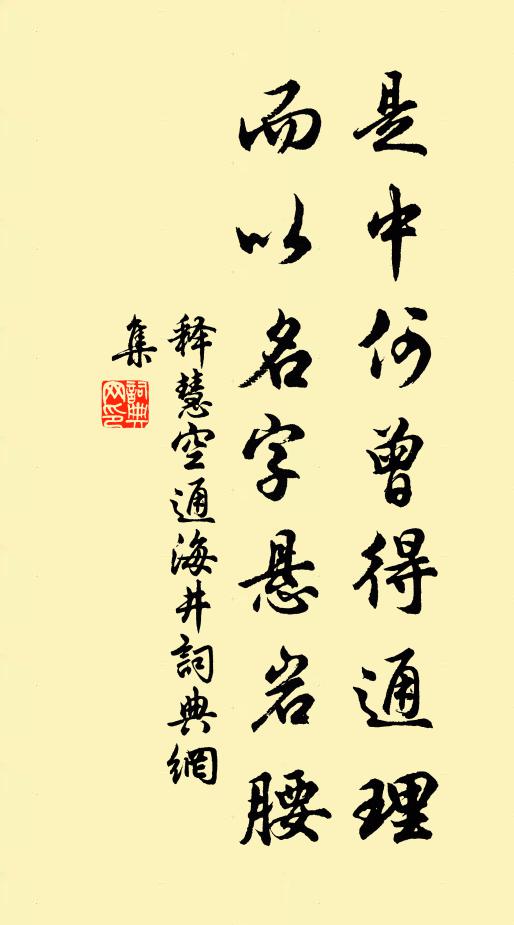 是中何曾得通理
而以名字悬岩腰
释慧空通海井詞典網
集
詞典
网印